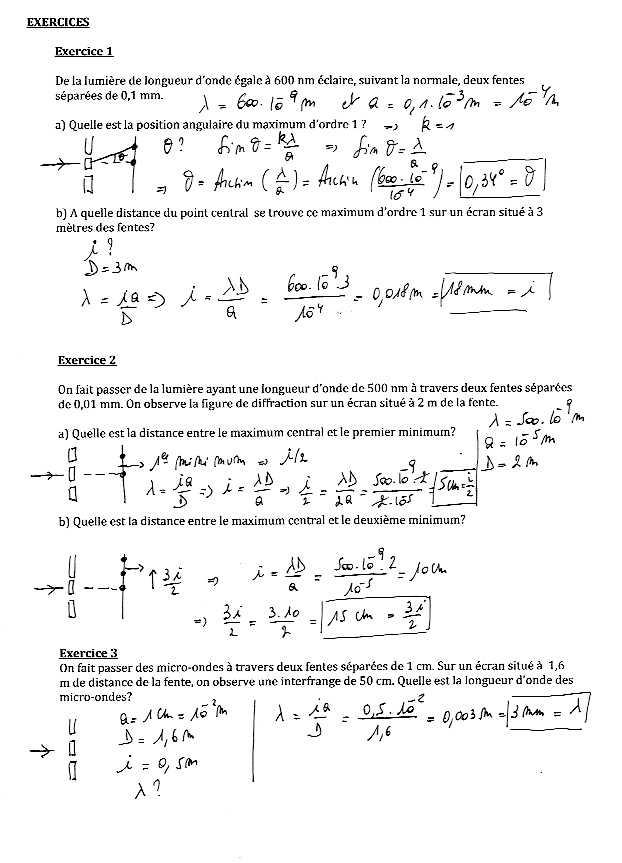 EXERCICES
Exercice 1
De la lumière de longueur d'onde égale à 600 nm éclaire, suivant la normale, deux fentes
séparées de 0,1 mm. λ = 600. 10⁻⁹ m et a = 0,1. 10⁻³ m = 10⁻⁴ m
a) Quelle est la position angulaire du maximum d'ordre 1 ? => k = 1
θ
θ? Sin θ = kλ/a => Sin θ = λ/a
=> θ = Arcsin (λ/a) = Arcsin (600. 10⁻⁹/10⁻⁴) = 0,34° = θ
b) A quelle distance du point central se trouve ce maximum d'ordre 1 sur un écran situé à 3
mètres des fentes?
i ?
D = 3 m
λ = ia/D => i = λD/a = 600. 10⁻⁹ 3/10⁻⁴ = 0,018 m = 18 mm = i
Exercice 2
On fait passer de la lumière ayant une longueur d'onde de 500 nm à travers deux fentes séparées
de 0,01 mm. On observe la figure de diffraction sur un écran situé à 2 m de la fente.
λ = 500. 10⁻⁹ m
a = 10⁻⁵ m
D = 2 m
a) Quelle est la distance entre le maximum central et le premier minimum?
1er minimum => i/2
λ = ia/D => i = λD/a => i/2 = λD/2a = 500. 10⁻⁹. 2/2. 10⁻⁵ = 5 cm = i/2
b) Quelle est la distance entre le maximum central et le deuxième minimum?
3i/2 => i = λD/a = 500. 10⁻⁹. 2/10⁻⁵ = 10 cm
=> 3i/2 = 3. 10/2 = 15 cm = 3i/2
Exercice 3
On fait passer des micro-ondes à travers deux fentes séparées de 1 cm. Sur un écran situé à 1,6
m de distance de la fente, on observe une interfrange de 50 cm. Quelle est la longueur d'onde des
micro-ondes?
a = 1 cm = 10⁻² m
D = 1,6 m
i = 0,5 m
λ ?
λ = ia/D = 0,5. 10⁻²/1,6 = 0,003 m = 3 mm = λ